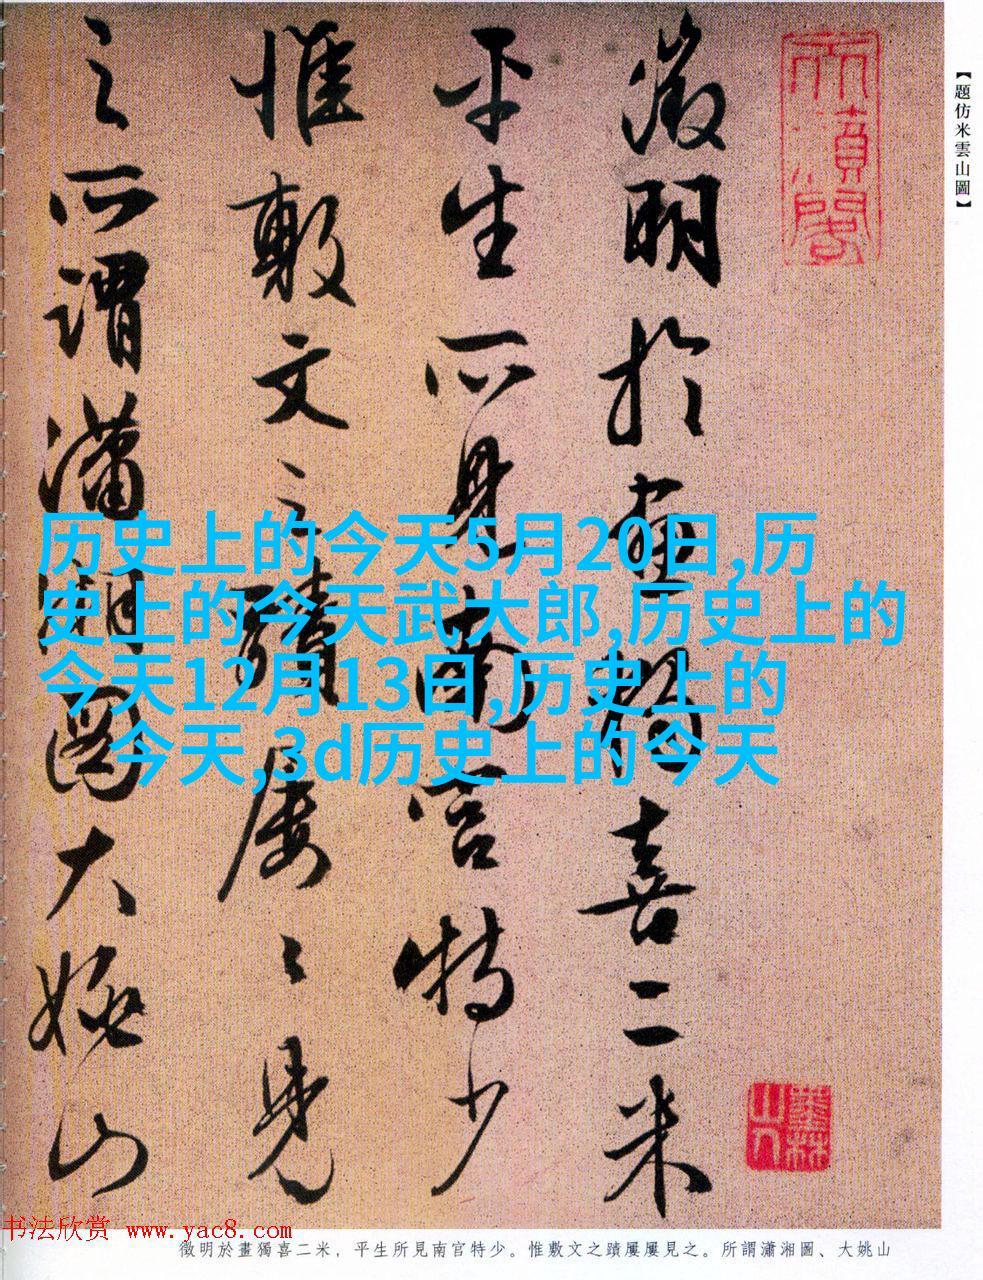 【題仿米雲山圖】
徵明於畫獨喜二米
平生所見南宮特少
惟敷文之蹟屢〻見
之所謂瀟湘圖大姚山
墨林
山人
历史上的今天5月20日,历
史上的今天武大郎,历史上的
今天12月13日,历史上的
今天,3d历史上的今天
书法欣赏 www.yac8.com
徵明於畫獨喜二米，平生所見南官特少。惟敷文之蹟屢屢見之。所謂瀟湘圖、大姚山